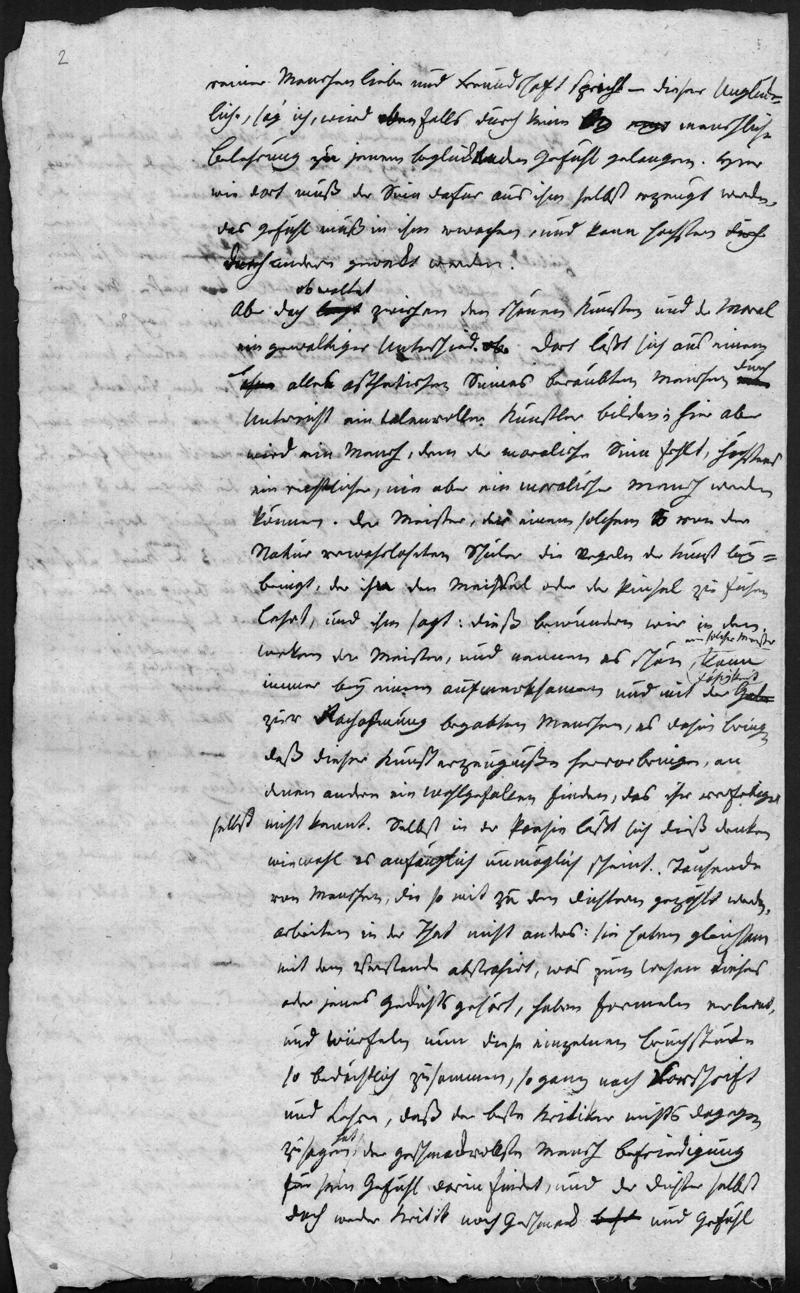 2
reiner Menschenliebe und Freundschaft spricht – dieser Unglück=
liche, sag ich, wird ebenfalls durch keine menschliche
Belehrung zu jenem beglückenden Gefühl gelangen. Hier
wie dort muß der Sinn dafür aus ihm selbst erzeugt werden,
das Gefühl muß in ihm erwachen, und kann höchstens durch
durch andere geweckt werden.
obwaltet
Aber doch liegt zwischen den schönen Künsten und der Moral
ein gewaltiger Unterschied. Dort läßt sich aus einem
alles ästhetischen Sinnes beraubten Menschen durch
Unterricht ein talentvoller Künstler bilden; hier aber
wird ein Mensch, dem der moralische Sinn fehlt, höchstens
ein rechtlicher, nie aber ein moralischer Mensch werden
können. Der Meister, der einem solchem von der
Natur verwahrlosten Schüler die Regeln der Kunst bey=
bringt, der ihn den Meißel oder den Pinsel zu führen
lehrt, und ihm sagt: dieß bewundern wir in den
ein solcher Meister
Werken der Meister, und nennen es schön, kann
Fähigkeit
immer bey einem aufmerksamen und mit der Gabe
zur Nachahmung begabten Menschen, es dahin bringen
daß dieser Kunsterzeugnisse hervorbringe, an
denen andere ein Wohlgefallen finden, das ihr Verfertiger
selbst nicht kennt. Selbst in der Poesie läßt sich dieß denken
wiewohl es anfänglich unmöglich scheint. Tausende
von Menschen, die so mit zu den Dichtern gezählt werden,
arbeiten in der That nicht anders: sie haben gleichsam
mit dem Verstande abstrahirt, was zum Wesen dieses
oder jenes Gedichts gehört, haben Formeln erlernt,
und würfeln nun diese einzelnen Bruchstücke
so bedächtlich zusammen, so ganz nach Vorschrift
und Lehre, daß der beste Kritiker nichts dagegen
zu sagen hat, der geschmackvollste Mensch Befriedigung
für sein Gefühl darin findet, und der Dichter selbst
doch weder Kritik noch Geschmack und Gefühl